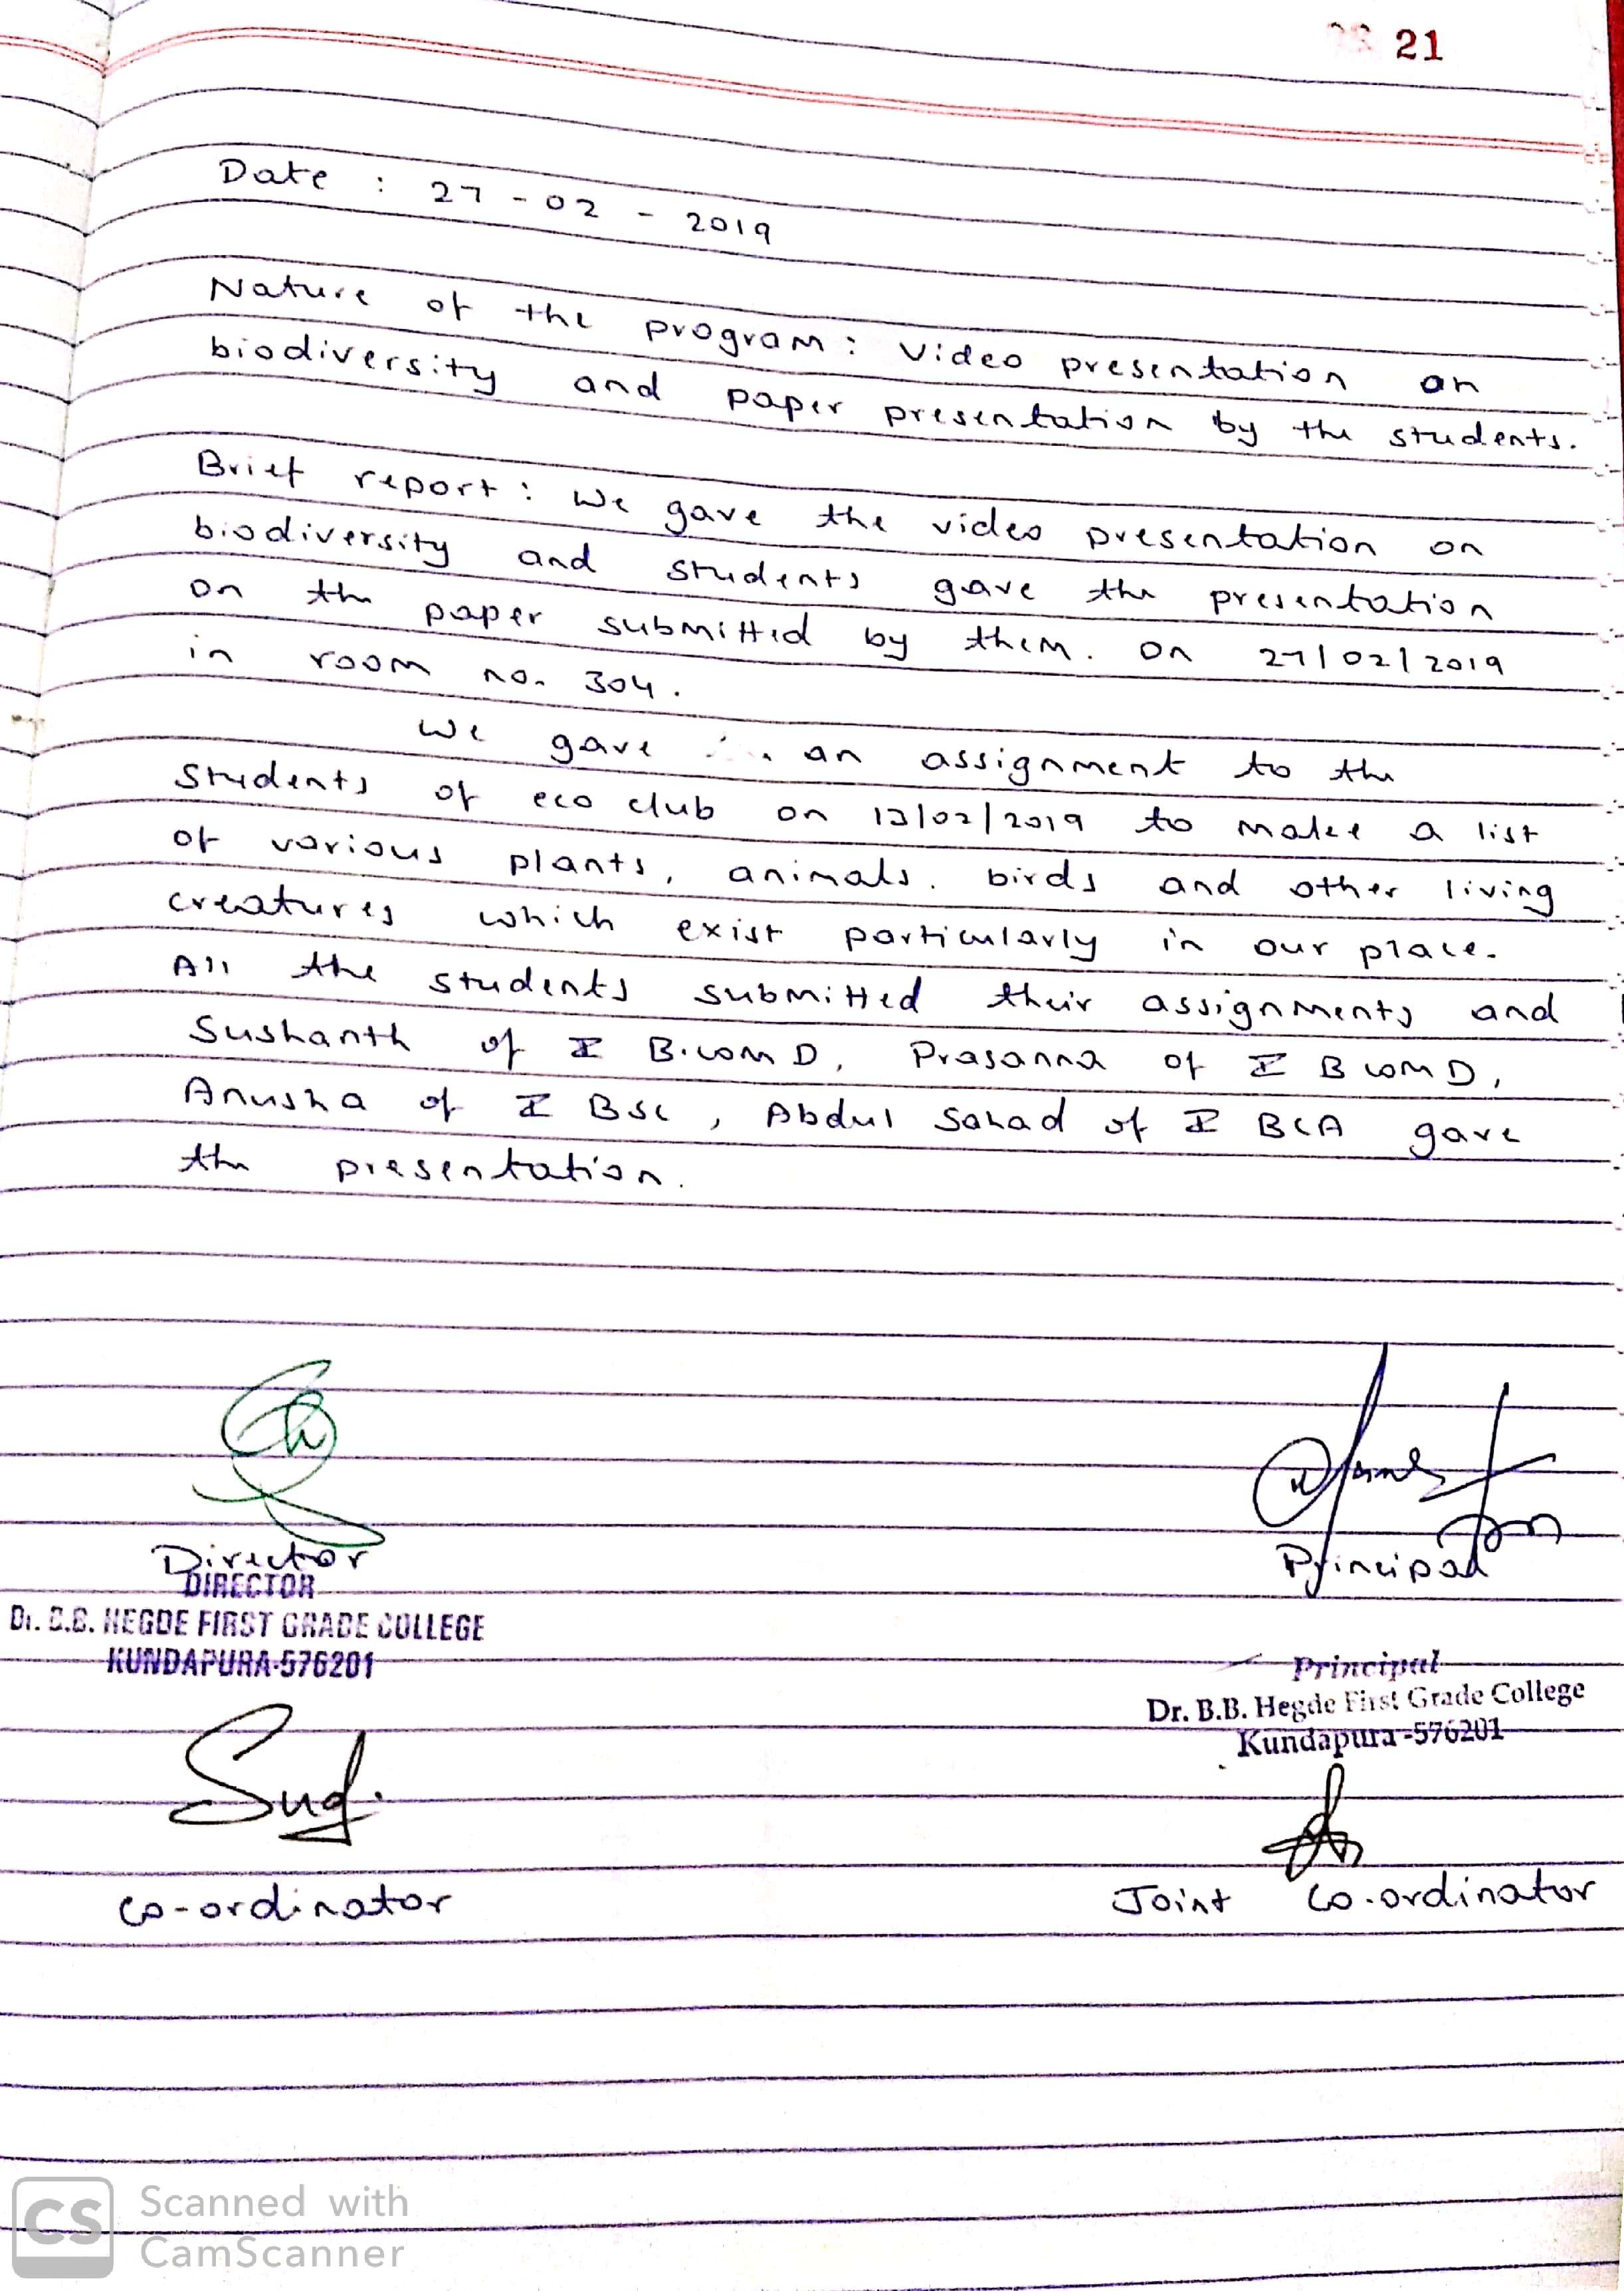 21
Date : 27 - 02 - 2019
Nature of the program : Video presentation on
biodiversity and paper presentation by the students.
Brief report : We gave the video presentation on
biodiversity and students gave the presentation
on the paper submitted by them. On 27/02/2019
in room no. 304.
We gave an assignment to the
students of eco club on 13/02/2019 to make a list
of various plants, animals, birds and other living
creatures which exist particularly in our place.
All the students submitted their assignments and
Sushanth of I B.com D, Prasanna of I B com D,
Anusha of I BSc, Abdul Sahad of I BCA gave
the presentation.
Director
Principal
DIRECTOR
Dr. B.B. HEGDE FIRST GRADE COLLEGE
KUNDAPURA-576201
Principal
Dr. B.B. Hegde First Grade College
Kundapura-576201
Co-ordinator
Joint Co-ordinator
CS
Scanned with
CamScanner